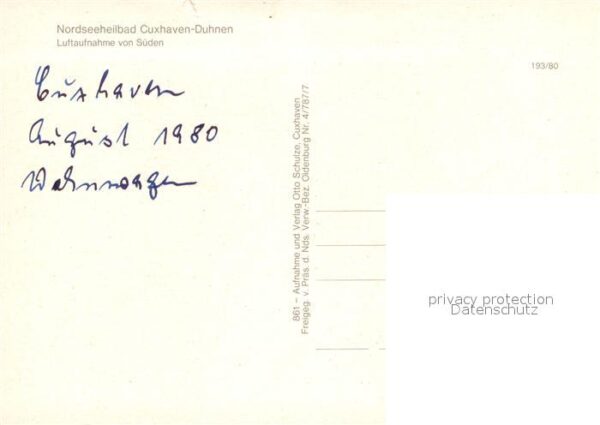 Nordseeheilbad Cuxhaven-Duhnen
Luftaufnahme von Süden
193/80
Cuxhaven
August 1980
Wohnwagen
861 – Aufnahme und Verlag Otto Schulze, Cuxhaven
Freigeg. v. Präs. d. Nds. Verw-Bez. Oldenburg Nr. 4/787/7
privacy protection
Datenschutz